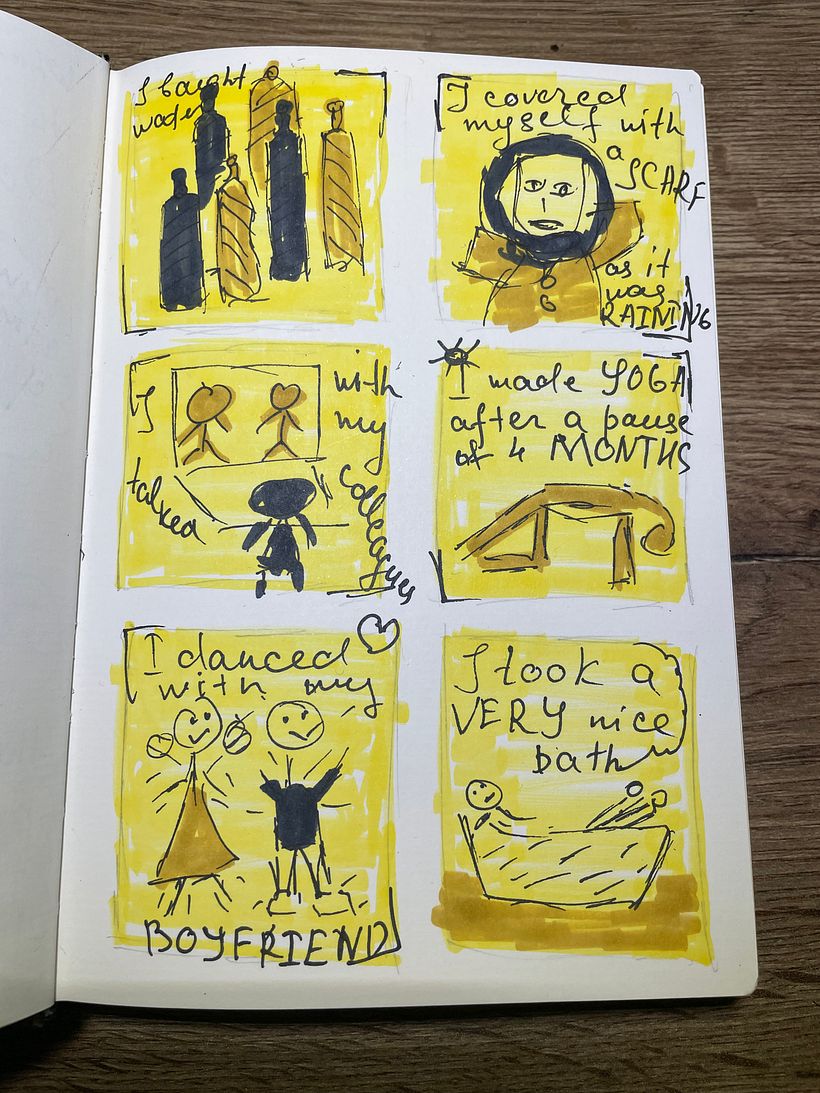 I baught
water
I covered
myself with
a
SCARF
as it
was
RAINING
I
talked
with
my
colleagues
I made YOGA
after a pause
of 4 MONTHS
I danced
with my
BOYFRIEND
I took a
VERY nice
bath